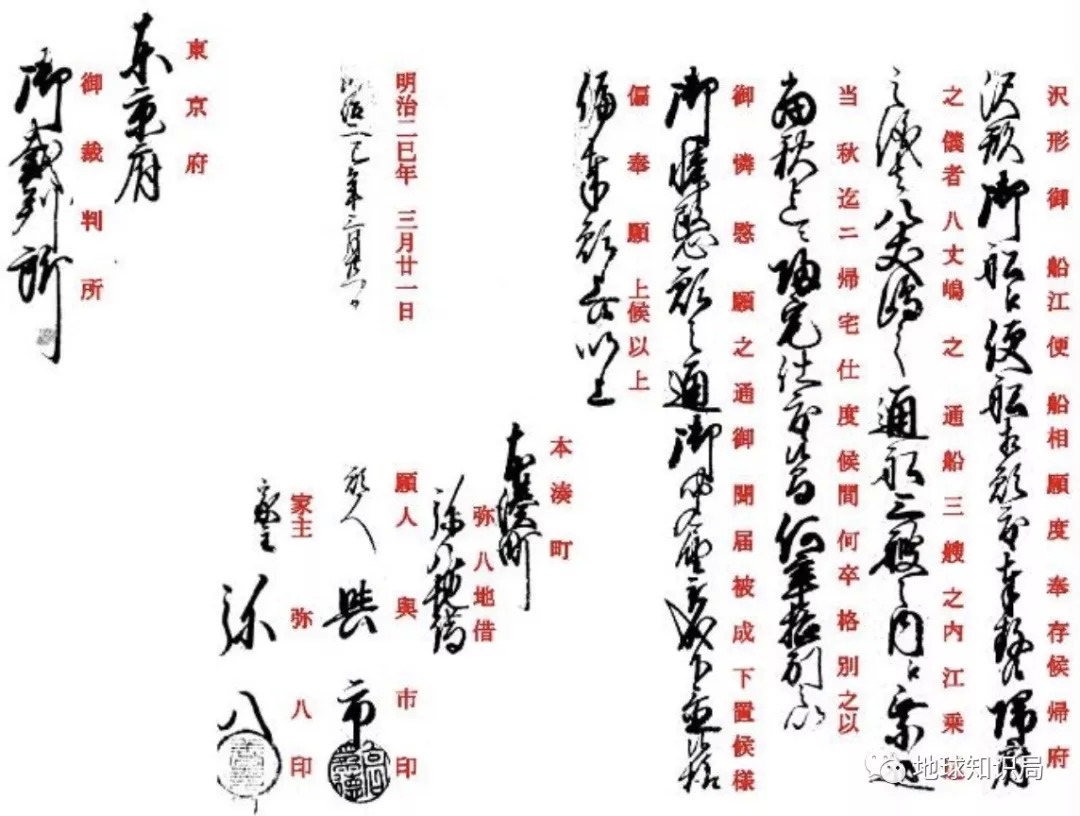 沢形御船江便船相願度奉存候帰府
之儀者八丈嶋之通船三艘之内江乗
当秋迄ニ帰宅仕度候間何卒格別之以
御憐愍願之通御聞届被成下置候様
偏奉願上候以上
本湊町
弥八地借
願人 與市印
家主 弥八印
明治二巳年 三月廿一日
東京府
御裁判所
地球知识局